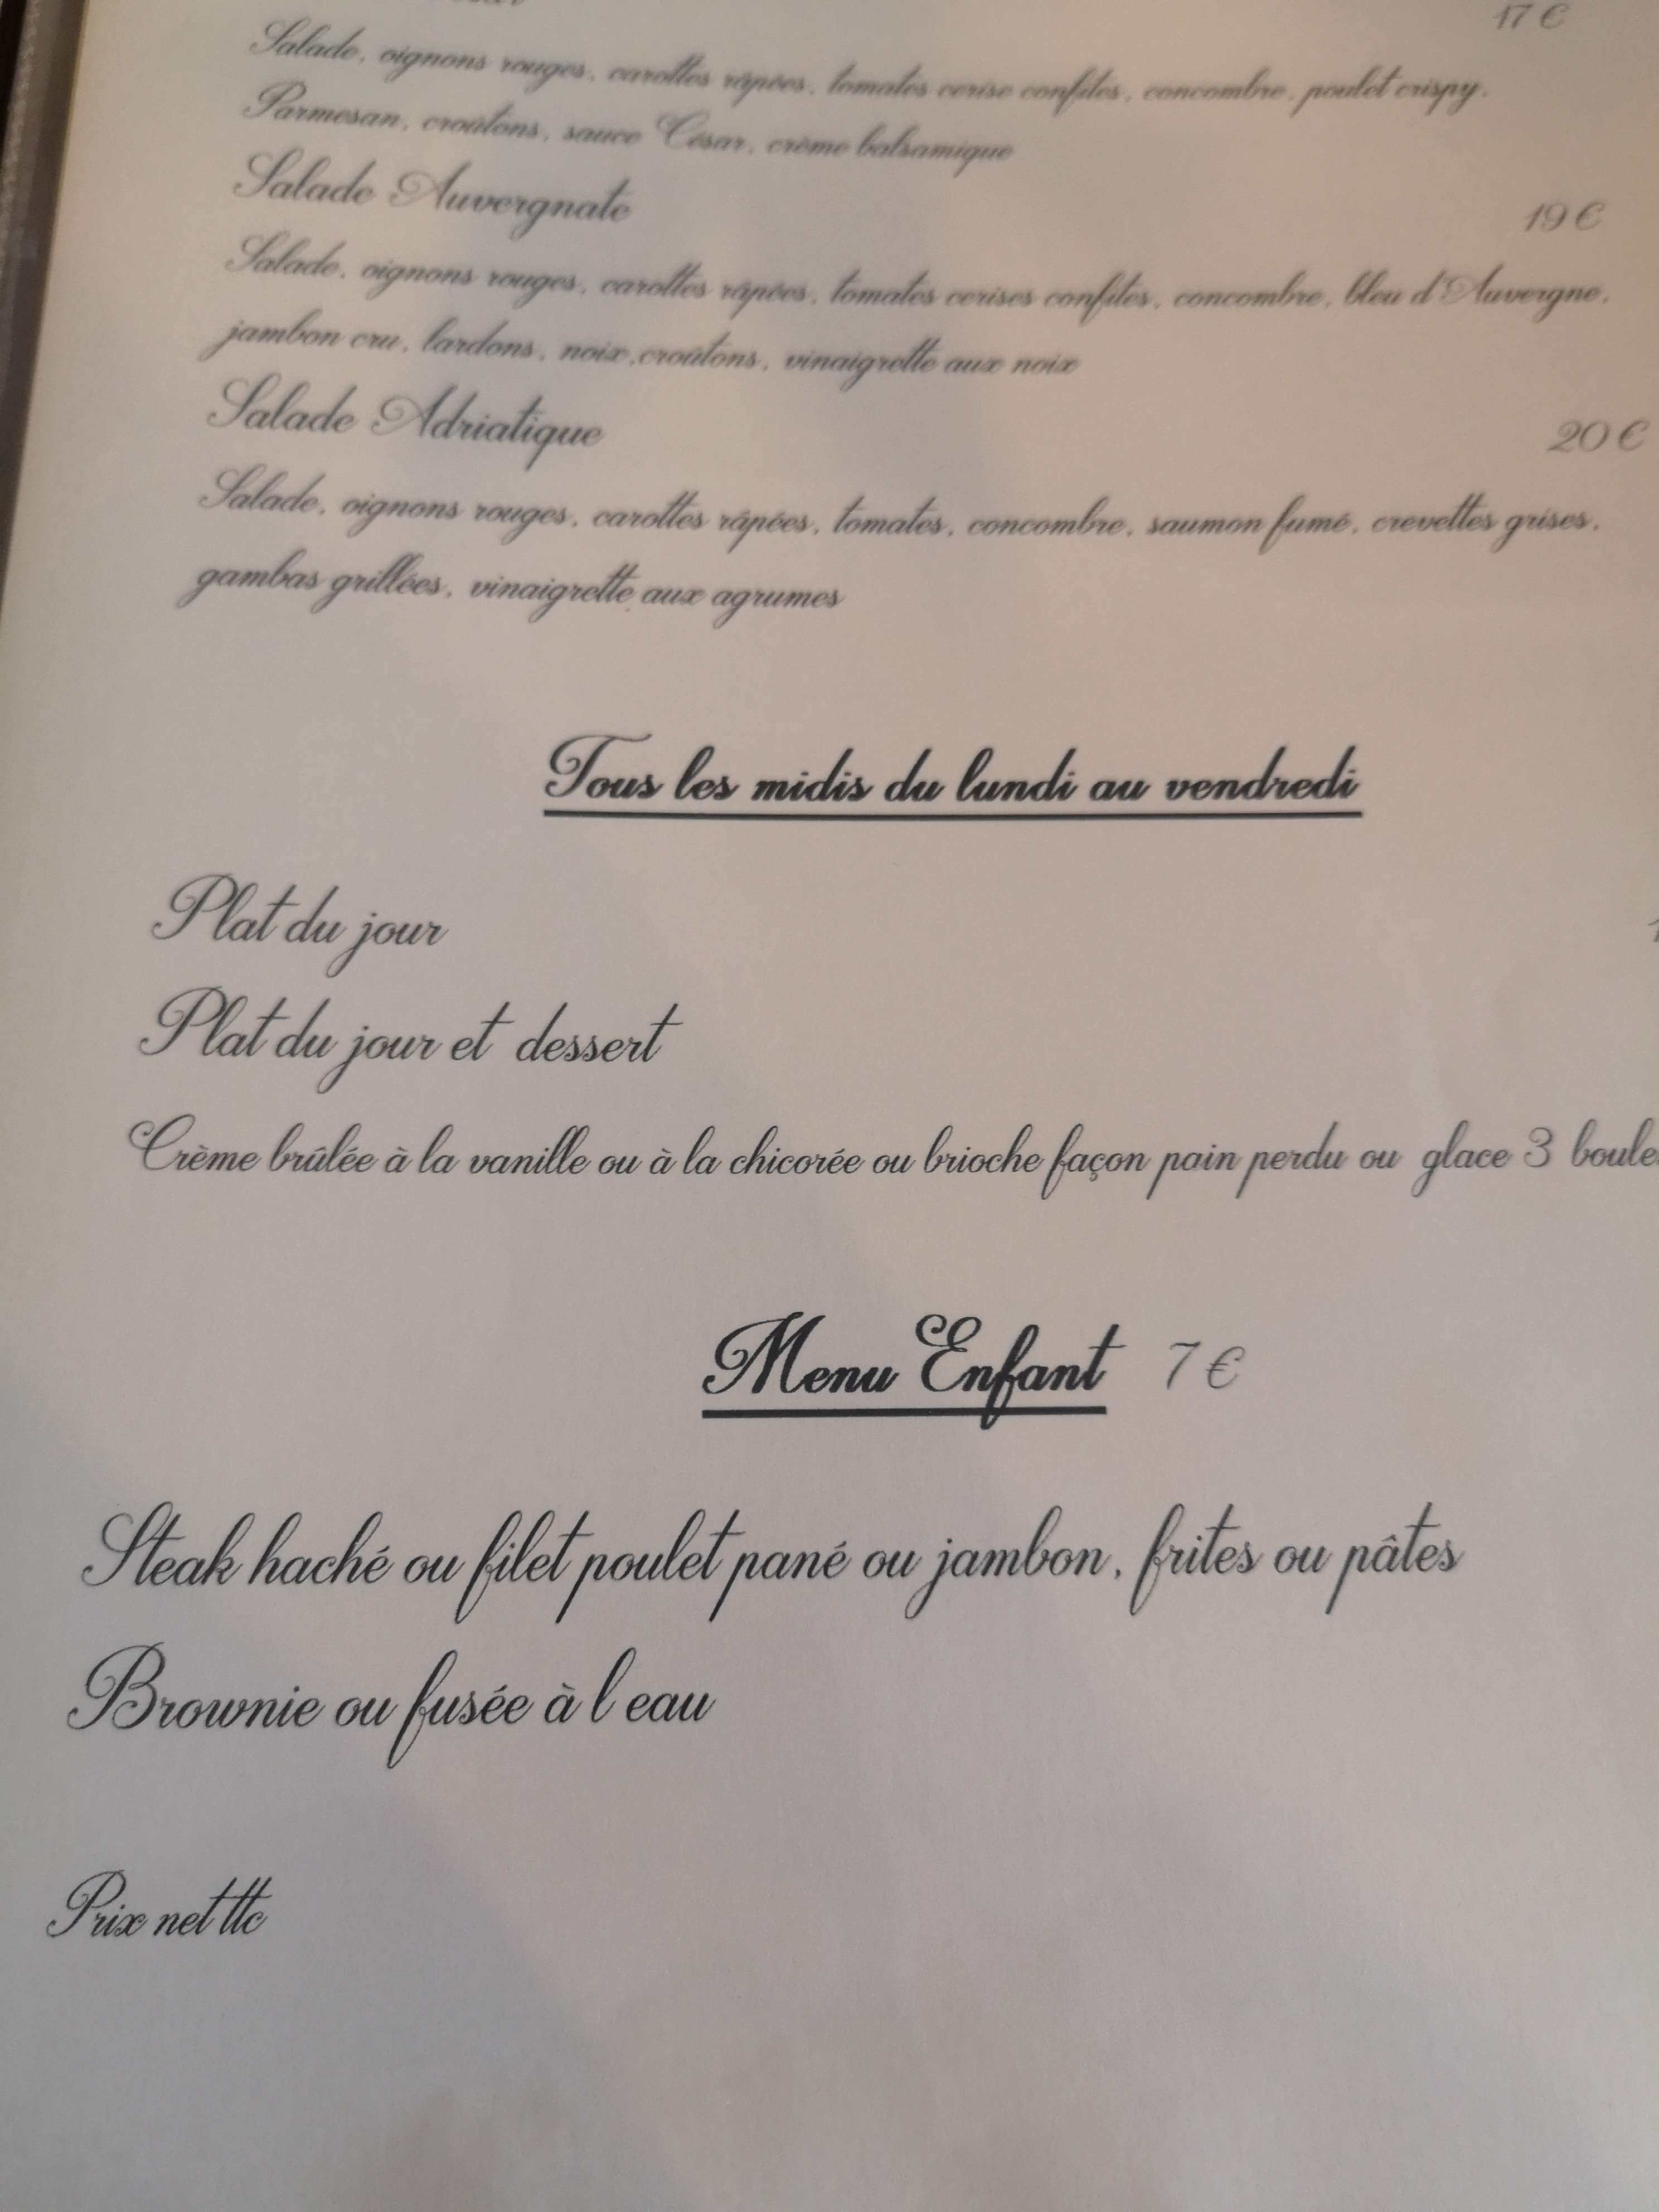 17 €
Salade, oignons rouges, carottes râpées, tomates cerise confites, concombre, poulet crispy,
Parmesan, croûtons, sauce César, crème balsamique
Salade Auvergnate 19 €
Salade, oignons rouges, carottes râpées, tomates cerises confites, concombre, bleu d'Auvergne,
jambon cru, lardons, noix, croûtons, vinaigrette aux noix
Salade Adriatique 20 €
Salade, oignons rouges, carottes râpées, tomates, concombre, saumon fumé, crevettes grises,
gambas grillées, vinaigrette aux agrumes
Tous les midis du lundi au vendredi
Plat du jour
Plat du jour et dessert
Crème brûlée à la vanille ou à la chicorée ou brioche façon pain perdu ou glace 3 boule
Menu Enfant 7 €
Steak haché ou filet poulet pané ou jambon, frites ou pâtes
Brownie ou fusée à l eau
Prix net ttc